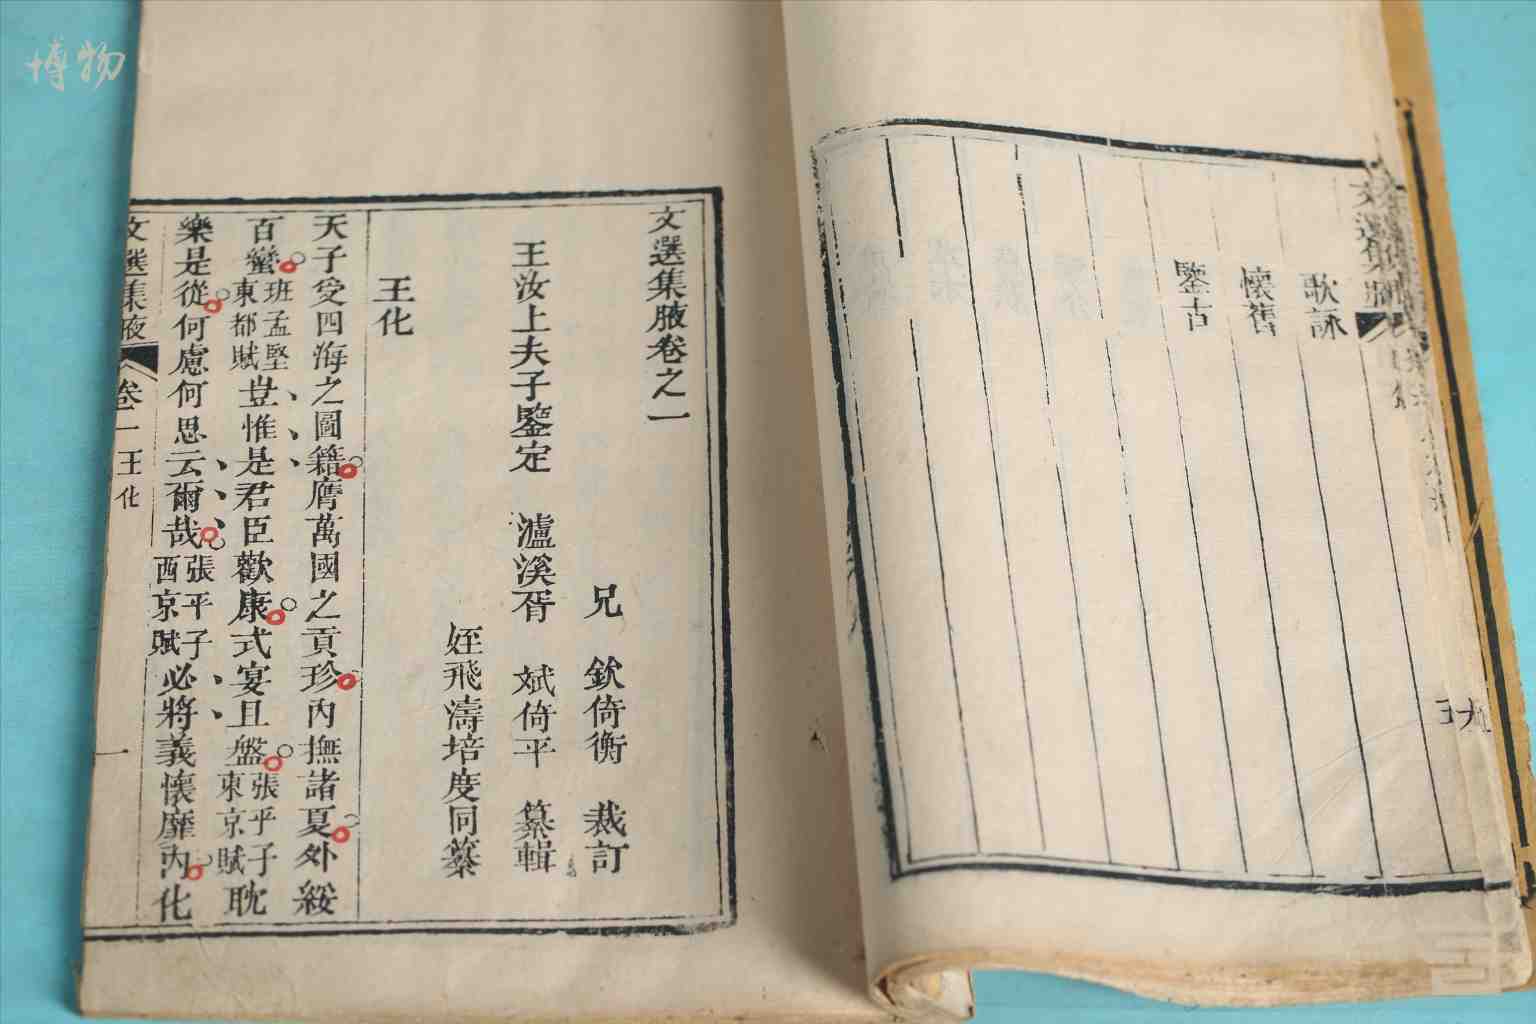 博物
歌詠
懷舊
鑒古
文選集腋
文選集腋卷之一
兄 欽倚衡 裁訂
王汝上夫子鑒定 瀘溪胥 斌倚平 纂輯
姪飛濤培度同纂
王化
天子受四海之圖籍膺萬國之貢珍內撫諸夏外綏
百蠻班孟堅東都賦豈惟是君臣歡康式宴且盤張平子東京賦耽
樂是從何慮何思云爾哉張平子西京賦必將義懷靡內化
文選集腋 卷一 王化 一